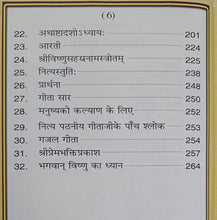 ( 6 )
22. अथाष्टादशोऽध्यायः 201
23. आरती 224
24. श्रीविष्णुसहस्रनामस्तोत्रम् 225
25. नित्यस्तुतिः 238
26. प्रार्थना 240
27. गीता सार 242
28. मनुष्यको कल्याण के लिए 245
29. नित्य पठनीय गीताजीके पाँच श्लोक 247
30. गजल गीता 250
31. श्रीप्रेमभक्तिप्रकाश 253
32. भगवान् विष्णु का ध्यान 264